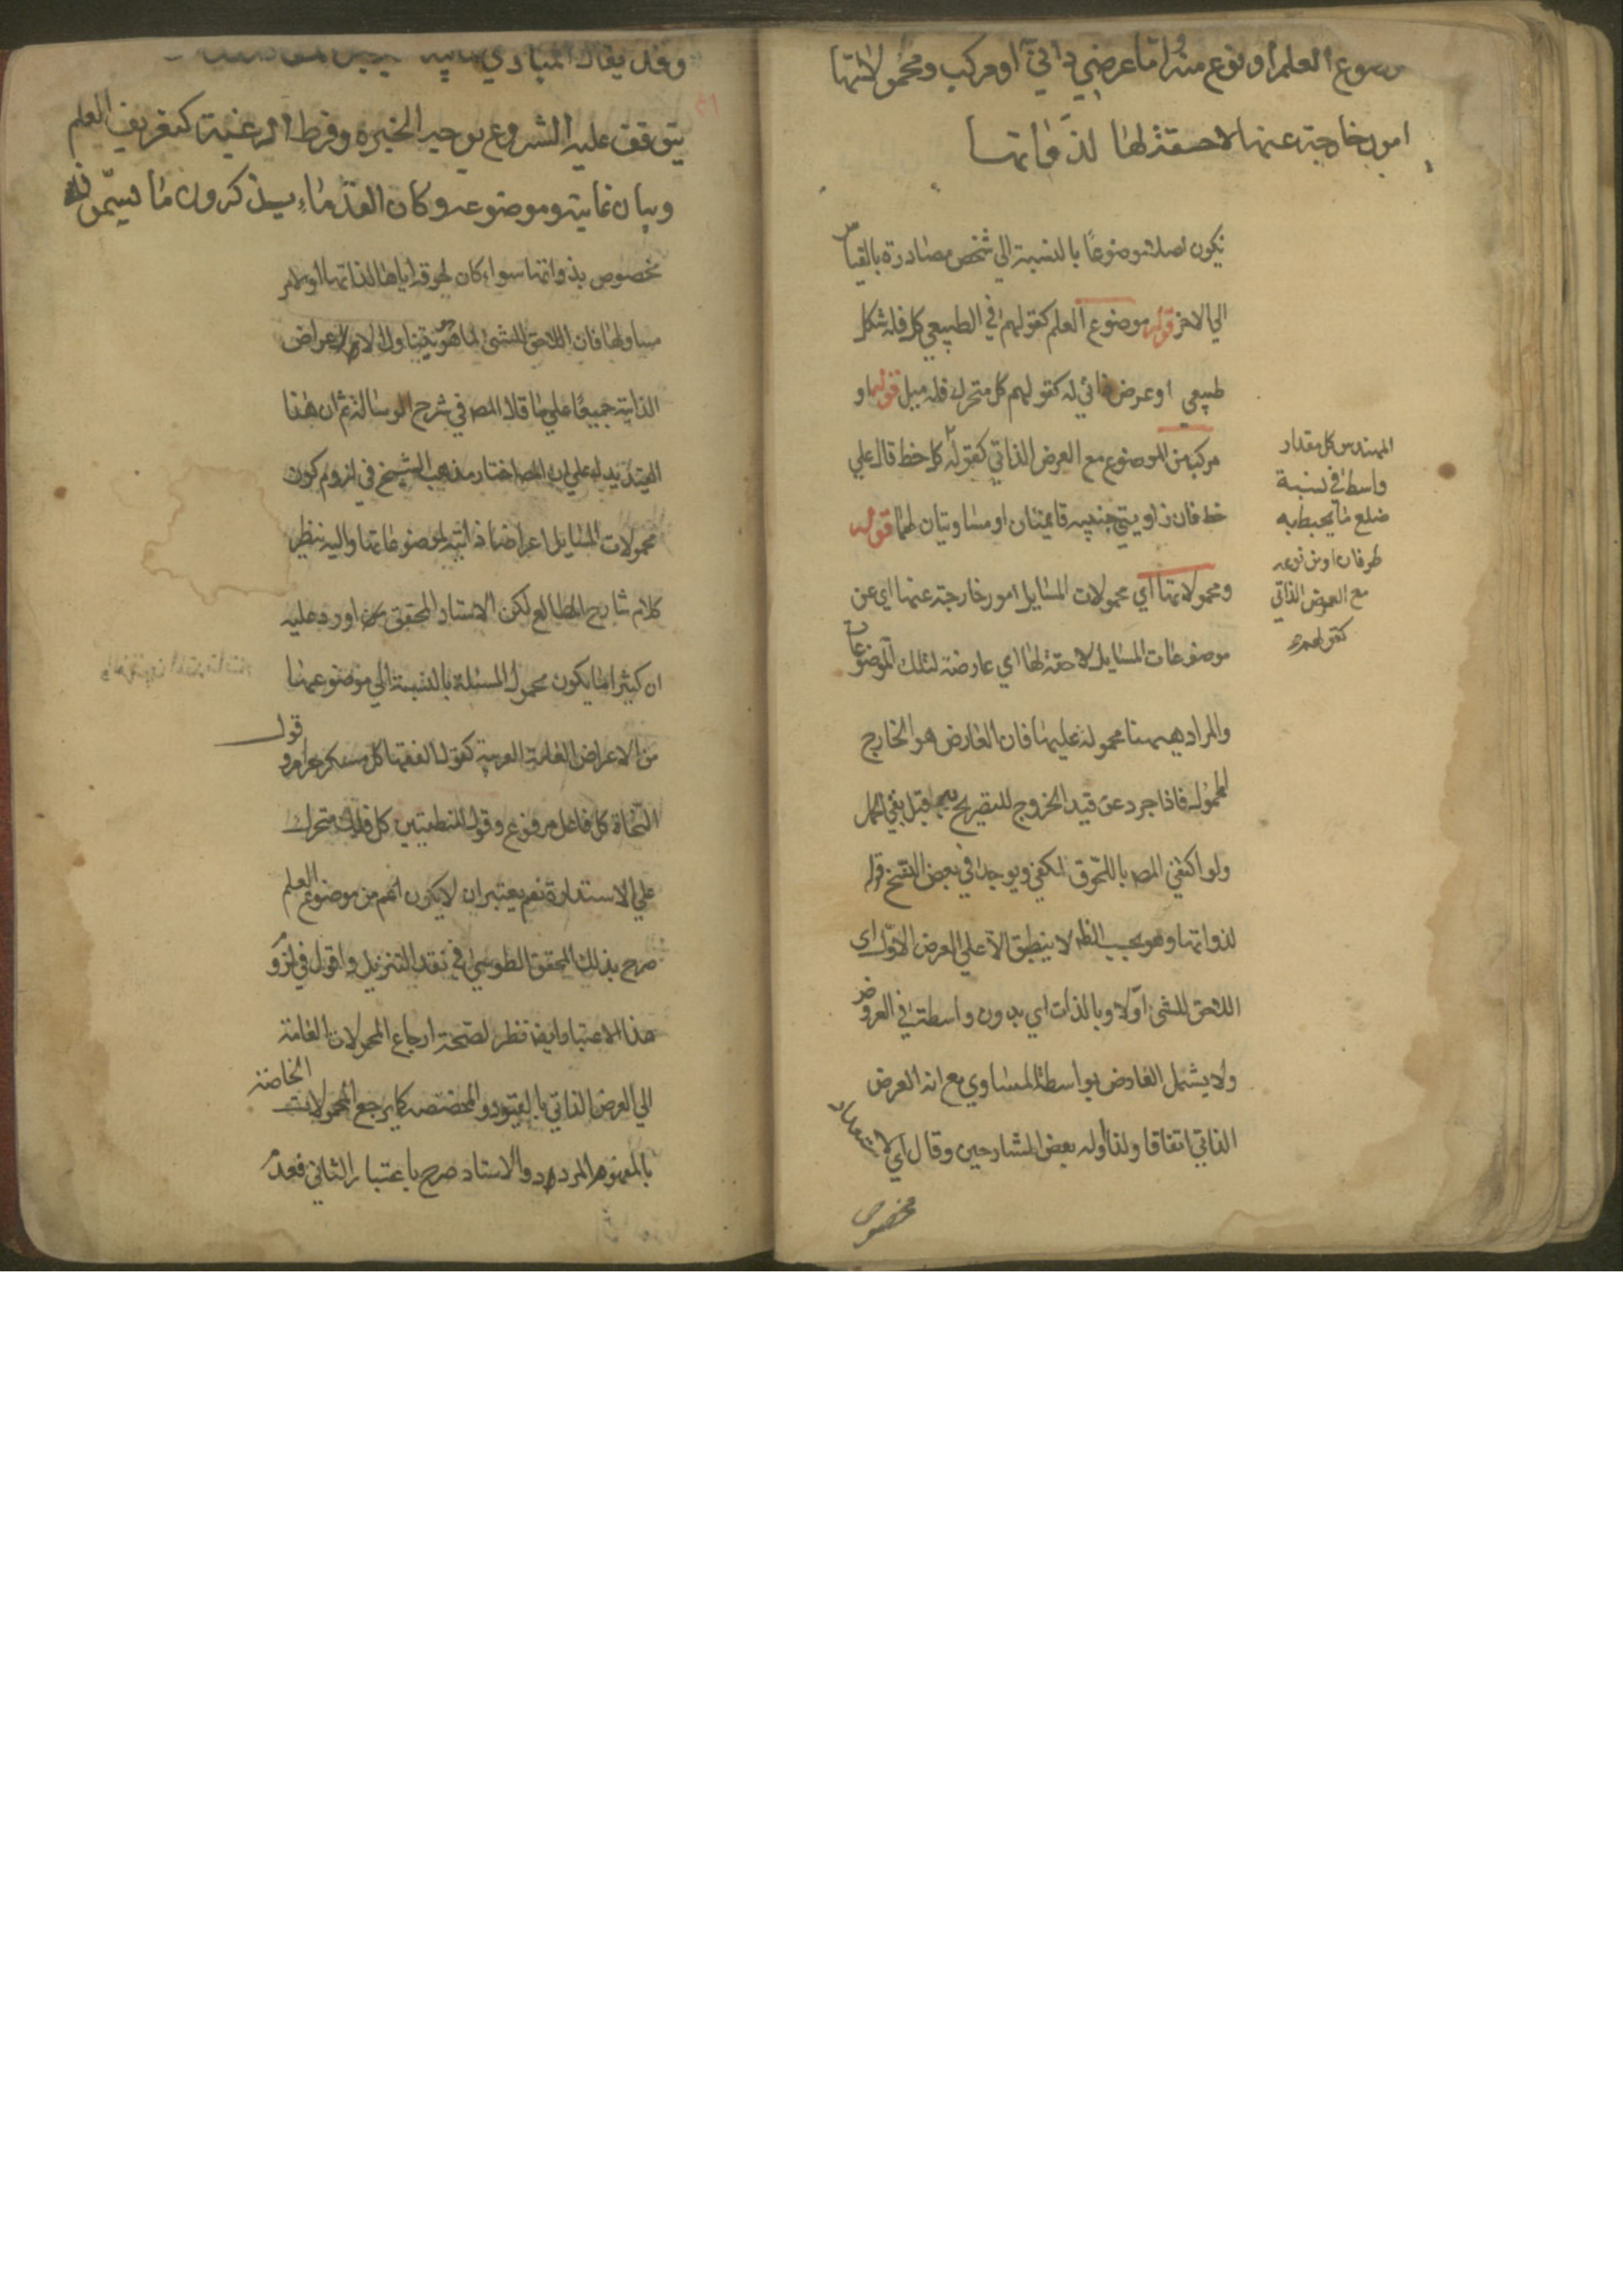 موضوع العلم او نوع منه او اما عرض ذاتي او مركب ومحمولاتها
امور خارجة عنها لاحقة لها لذواتها
يكون اصلا موضوعا بالنسبة الي شخص مصادرة بالقياس
الي الاخر قوله موضوع العلم كقولهم في الطبيعي كل فله شكل
طبيعي او عرض ذاتي له كقولهم كل متحرك فله ميل قوله او
مركب من الموضوع مع العرض الذاتي كقوله كل خط قال علي
خط فان زاويتي جنبيه قائمتان او مساويتان لهما قوله
ومحمولاتها اي محمولات المسايل امور خارجة عنها اي عن
موضوعات المسايل لاحقة لها اي عارضة لتلك الموضوعات
والمراد ههنا محمولة عليها فان العارض هو الخارج
المحمول فاذا جرد عن قيد الخروج للتصريح به قبل بقي الحمل
ولو اكتفي المص باللحوق لكفي ويوجد في بعض النسخ قوله
لذواتها وهو بحسب الظ لا ينطبق الا علي العرض الاولي اي
اللاحق للشئ اولا وبالذات اي بدون واسطة في العروض
ولا يشمل العارض بواسطة المساوي مع انه العرض
الذاتي اتفاقا ولذا اوله بعض الشارحين وقال اي لاستعداد
مخصوص
المهندس كل مقدار
واسط في نسبة
ضلع ما يحيط به
طرفان او من نوعه
مع العرض الذاتي
كقولهم
وقد يقال المبادي
يتوقف عليه الشروع بوجه الخبرة وفرط الرغبة كتعريف العلم
وبيان غايته وموضوعه وكان القدماء يذكرون ما يسمونه
مخصوص بذواتها سواء كان لحوقه اياها لذاتها او لامر
مساو لها فان اللاحق للشئ لما هو هو يتناول الاعراض
الذاتية جميعا علي ما قال المص في شرح الرسالة ثم ان هذا
القيد يدل علي ان المص اختار مذهب الشيخ في لزوم كون
محمولات المسايل اعراضا ذاتية لموضوعاتها واليه ينظر
كلام شارح المطالع لكن الاستاد المحقق اورد عليه
ان كثيرا ما يكون محمول المسئلة بالنسبة الي موضوعها
من الاعراض العامة الغريبة كقول الفقها كل مسكر حرام وقول
النحاة كل فاعل مرفوع وقول المنطقيين كل فلك متحرك
علي الاستدارة نعم يعتبر ان لا يكون اعم من موضوع العلم
صرح بذلك المحقق الطوسي في نقد التنزيل واقول في لزوم
هذا الاعتبار ايضا نظر لصحة ارجاع المحمولات العامة
الي العرض الذاتي بالقيود المخصصة كما يرجع المحمولات الخاصة
بالمفهوم المردد والاستاد صرح باعتبار الثاني فعدم